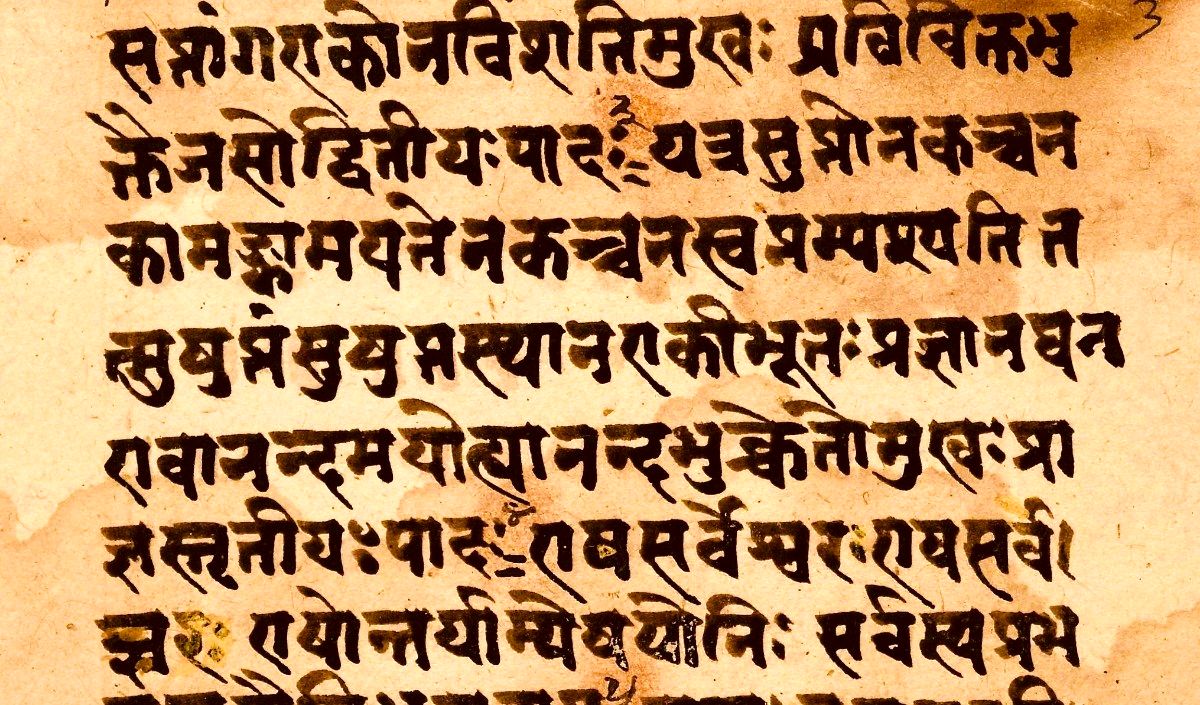 सप्तांगएकोनविंशतिमुखः प्रविविक्तभु
क्तैजसोद्वितीयःपादः३ यत्रसुप्तोनकञ्चन
कामङ्कामयतेनकञ्चनस्वप्नम्पश्यतित
त्सुषुप्तंसुषुप्तस्थानएकीभूतःप्रज्ञानघन
एवानन्दमयोह्यानन्दभुक्चेतोमुखःप्रा
ज्ञस्तृतीयःपादः४एषसर्वेश्वरःएषसर्व।
ज्ञः एषोन्तर्याम्येषयोनिः सर्वस्यप्रभ